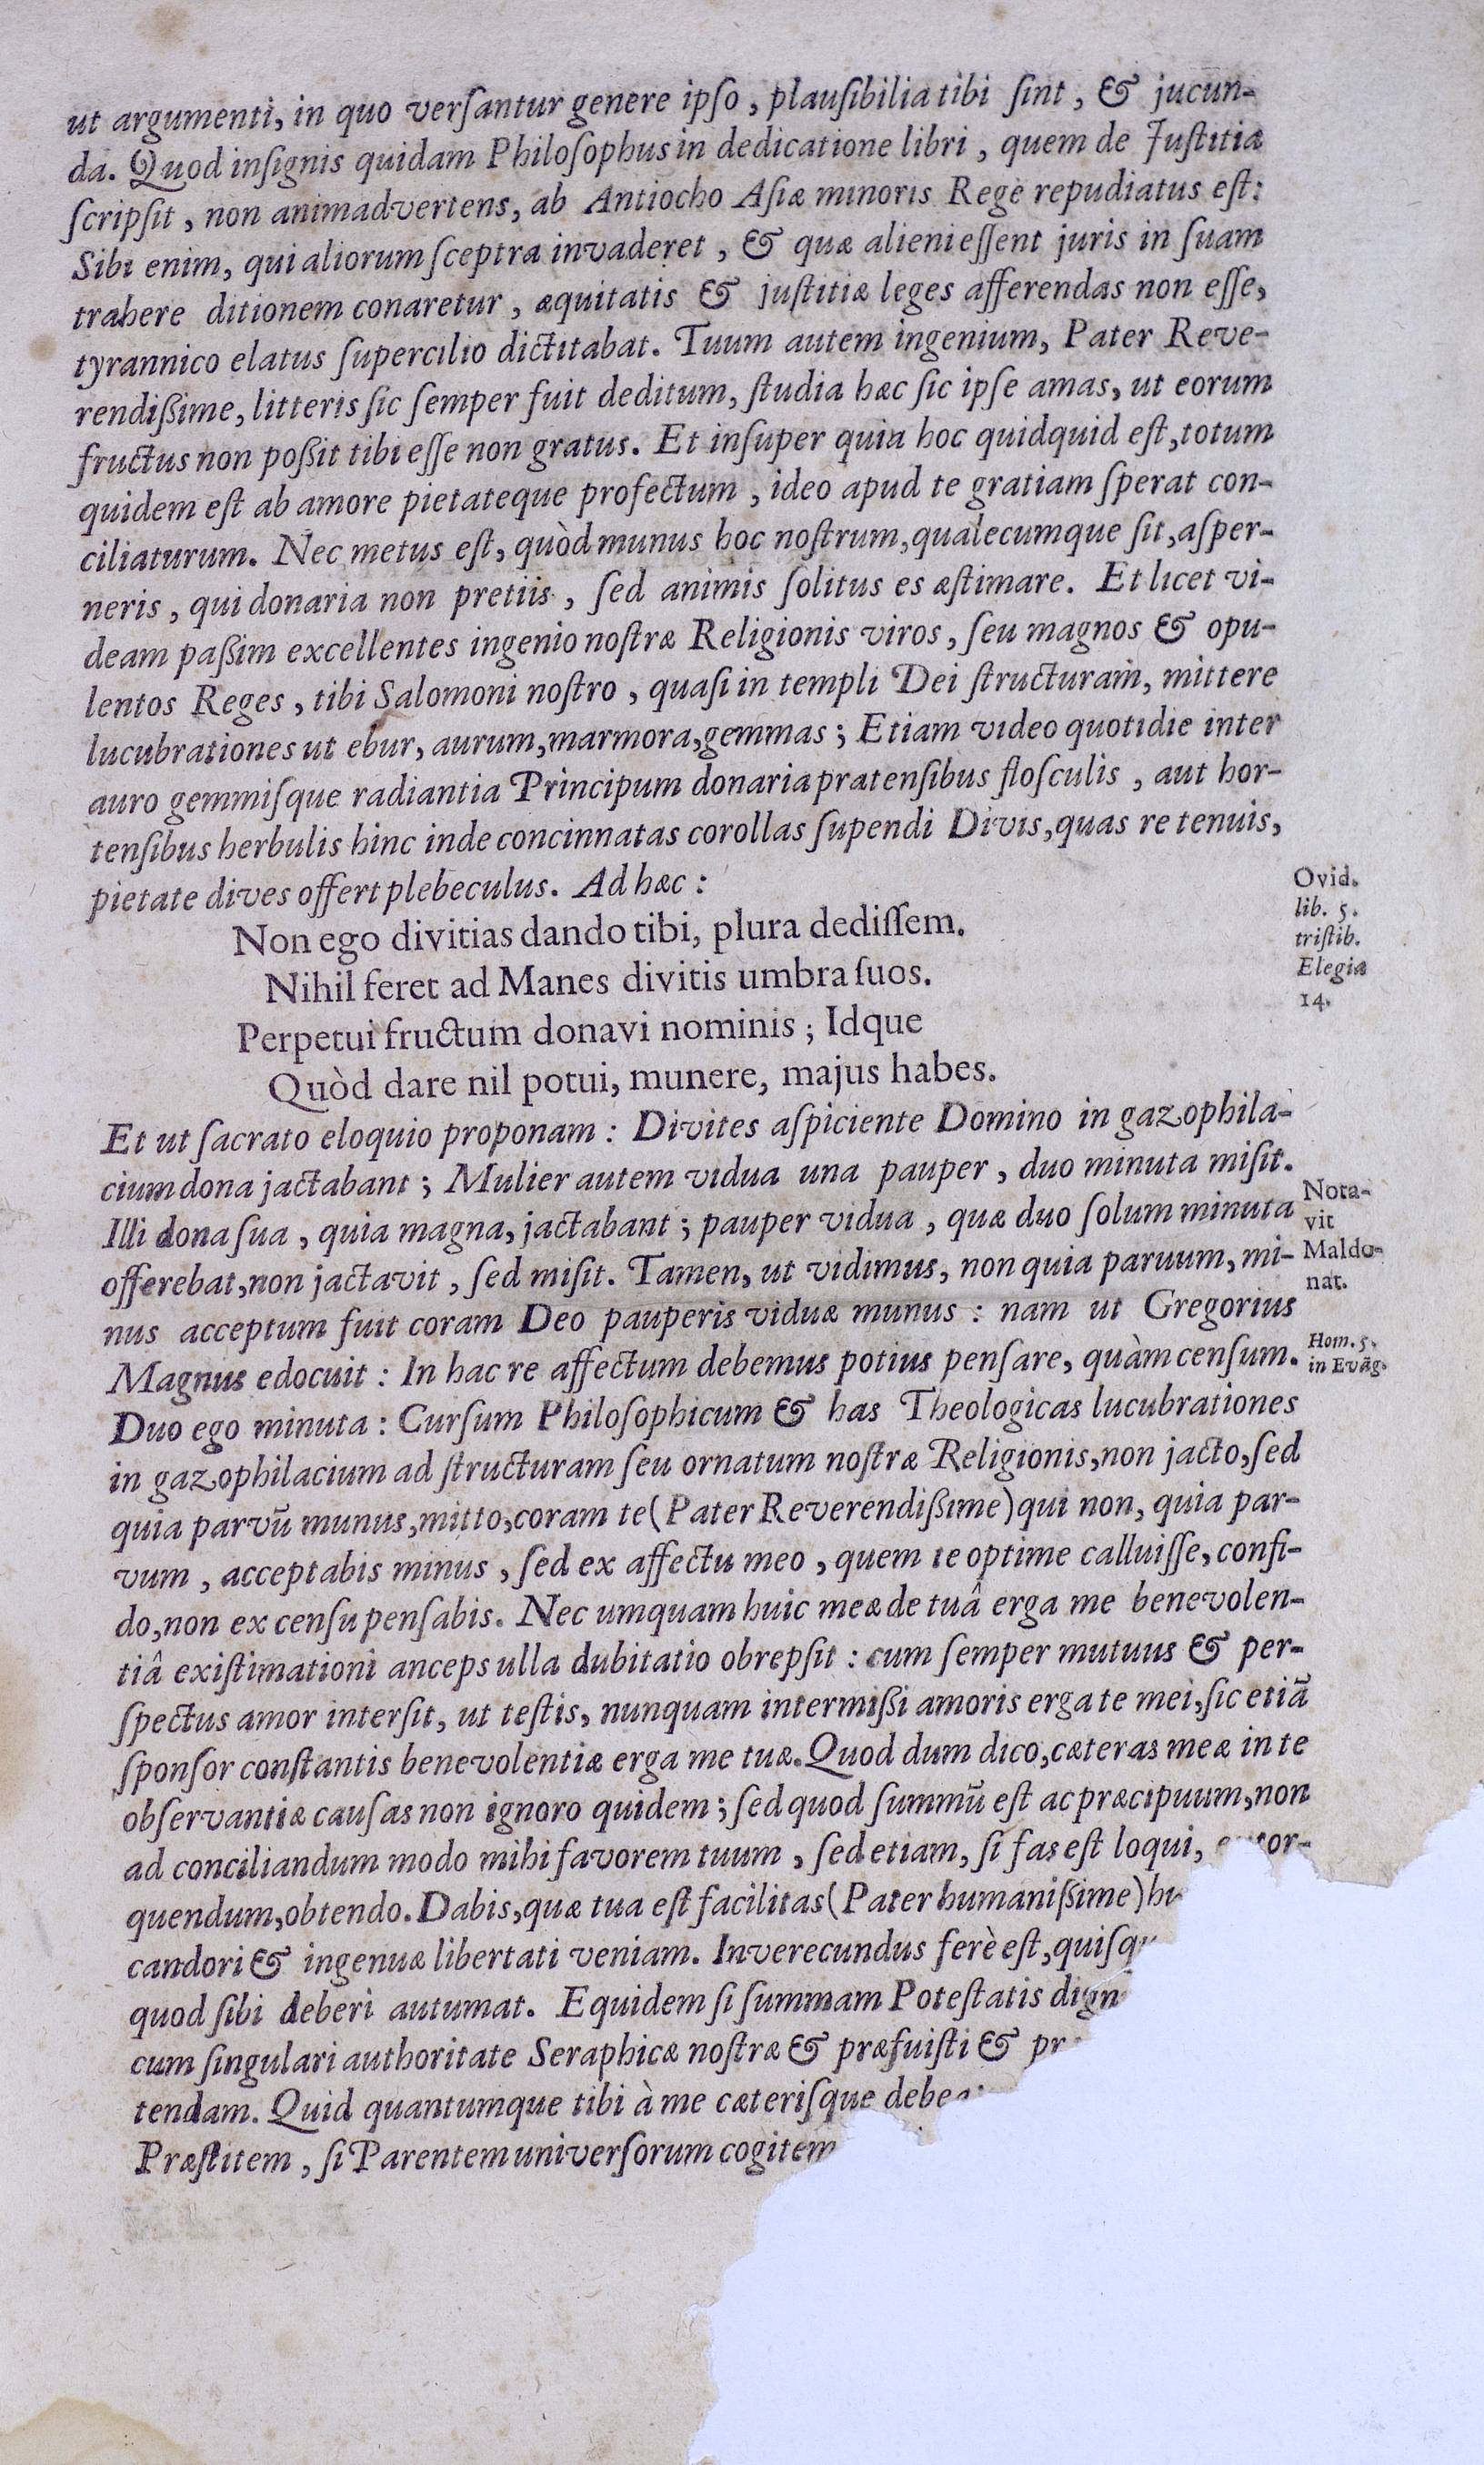 ut argumenti, in quo versantur genere ipso, plausibilia tibi sint, & jucun-
da. Quod insignis quidam Philosophus in dedicatione libri, quem de Justitia
scripsit, non animadvertens, ab Antiocho Asiæ minoris Rege repudiatus est:
Sibi enim, qui aliorum sceptra invaderet, & quæ alieni essent juris in suam
trahere ditionem conaretur, æquitatis & justitiæ leges afferendas non esse,
tyrannico elatus supercilio dictitabat. Tuum autem ingenium, Pater Reve-
rendißime, litteris sic semper fuit deditum, studia hæc sic ipse amas, ut eorum
fructus non poßit tibi esse non gratus. Et insuper quia hoc quidquid est, totum
quidem est ab amore pietateque profectum, ideo apud te gratiam sperat con-
ciliaturum. Nec metus est, quòd munus hoc nostrum, qualecumque sit, asper-
neris, qui donaria non pretiis, sed animis solitus es æstimare. Et licet vi-
deam paßim excellentes ingenio nostræ Religionis viros, seu magnos & opu-
lentos Reges, tibi Salomoni nostro, quasi in templi Dei structuram, mittere
lucubrationes ut ebur, aurum, marmora, gemmas; Etiam video quotidie inter
auro gemmisque radiantia Principum donaria pratensibus flosculis, aut hor-
tensibus herbulis hinc inde concinnatas corollas supendi Divis, quas re tenuis,
pietate dives offert plebeculus. Ad hæc:
Non ego divitias dando tibi, plura dedissem.
Nihil feret ad Manes divitis umbra suos.
Perpetui fructum donavi nominis; Idque
Quòd dare nil potui, munere, majus habes.
Ovid.
lib. 5.
tristib.
Elegia
14.
Et ut sacrato eloquio proponam: Divites aspiciente Domino in gazophila-
cium dona jactabant; Mulier autem vidua una pauper, duo minuta misit.
Illi dona sua, quia magna, jactabant; pauper vidua, quæ duo solum minuta
offerebat, non jactavit, sed misit. Tamen, ut vidimus, non quia paruum, mi-
nus acceptum fuit coram Deo pauperis viduæ munus: nam ut Gregorius
Magnus edocuit: In hac re affectum debemus potius pensare, quàm censum.
Nota-
vit
Maldo-
nat.
Hom. 5.
in Evãg.
Duo ego minuta: Cursum Philosophicum & has Theologicas lucubrationes
in gazophilacium ad structuram seu ornatum nostræ Religionis, non jacto, sed
quia parvũ munus, mitto, coram te (Pater Reverendißime) qui non, quia par-
vum, acceptabis minus, sed ex affectu meo, quem te optime calluisse, confi-
do, non ex censu pensabis. Nec umquam huic meæ de tuâ erga me benevolen-
tiâ existimationi anceps ulla dubitatio obrepsit: cum semper mutuus & per-
spectus amor intersit, ut testis, nunquam intermißi amoris erga te mei, sic etiã
sponsor constantis benevolentiæ erga me tuæ. Quod dum dico, cæteras meæ in te
observantiæ causas non ignoro quidem; sed quod summũ est ac præcipuum, non
ad conciliandum modo mihi favorem tuum, sed etiam, si fas est loqui,
quendum, obtendo. Dabis, quæ tua est facilitas (Pater humanißime)
candori & ingenuæ libertati veniam. Inverecundus ferè est,
quod sibi deberi autumat. Equidem si summam Potestatis
cum singulari authoritate Seraphicæ nostræ & præfuisti &
tendam. Quid quantumque tibi à me cæterisque
Præstitem, si Parentem universorum cogitem